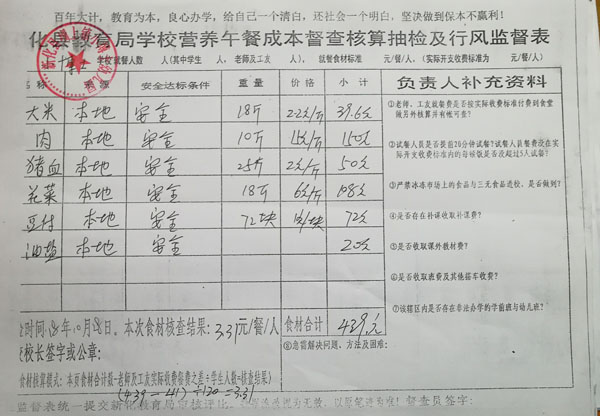 百年大计，教育为本，良心办学，给自己一个清白，还社会一个明白，坚决做到保本不赢利！
化县教育局学校营养午餐成本督查核算抽检及行风监督表
学校就餐人数 人(其中学生 人，老师及工友 人)， 就餐食材标准 元/餐/人， (实际开支收费标准为 元/餐/人)
名称 来源 安全达标条件 重量 价格 小计 负责人补充资料
大米 本地 安全 18斤 2.2元/斤 39.6元
①老师、工友就餐费是否按实际收费标准付到食堂做另外核算并有帐可查？
肉 本地 安全 10斤 15元/斤 150元
②试餐人员是否提前20分钟试餐？试餐人员餐费没在实际开支收费标准内的每顿饭是否没超过5人试餐？
猪血 本地 安全 25斤 2元/斤 50元
花菜 本地 安全 18斤 6元/斤 108元
③严禁冰冻市场上的食品与三无食品进校、是否做到？
豆付 本地 安全 72块 1元/块 72元
④是否存在补课收取补课费？
油盐 本地 安全 20元
⑤是否收取课外教材费？
⑥是否收取班费及其他搭车收费？
⑦该辖区内是否存在非法办学的学前班与幼儿班？
时间: 年10月28日。本次食材核查结果：3.31元/餐/人 食材合计 439.元
校长签字或公章：
⑧急需解决问题、方法及困难：
食材核算模式：本页食材合计数-老师及工友实际收费餐费之差÷学生人数=核查结果》
(439-41)÷120=3.31
监督表统一提交新化教育局审核评比，
督查员签字：